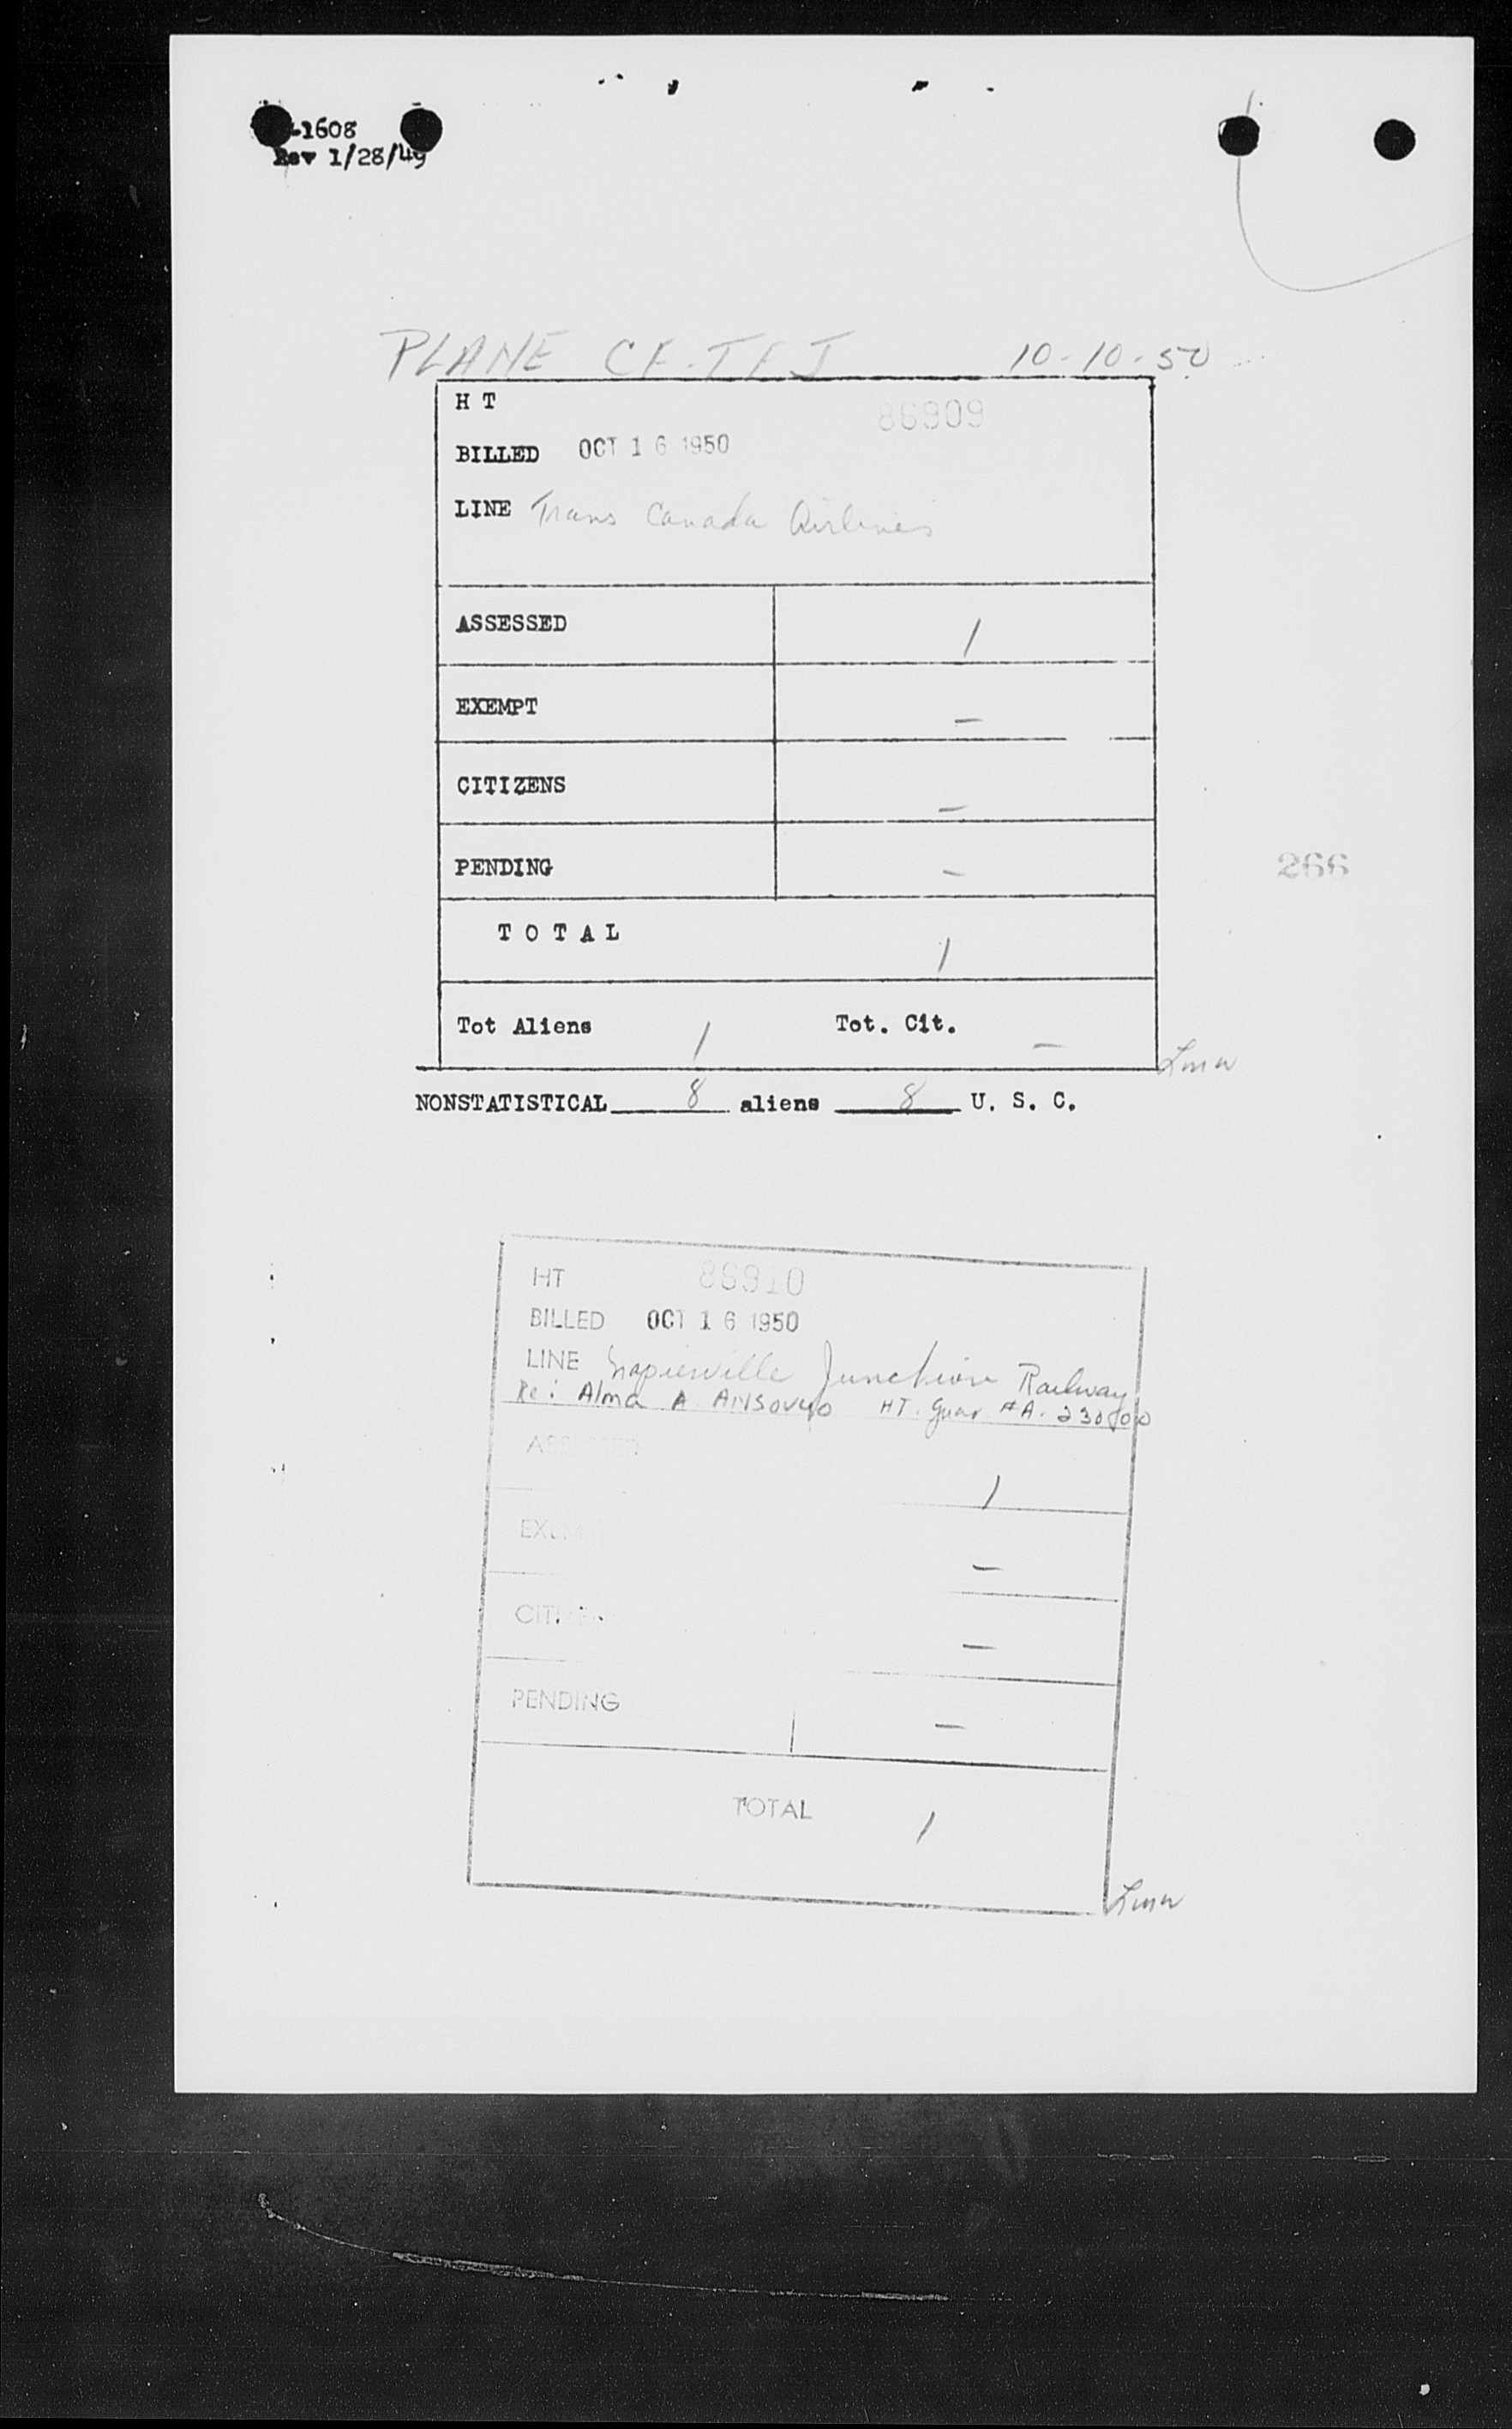 -1608
Rev 1/28/49
PLANE CF-TFJ 10-10-50
H T 86909
BILLED OCT 16 1950
LINE Trans Canada Airlines
ASSESSED 1
EXEMPT -
CITIZENS -
PENDING -
266
TOTAL 1
Tot Aliens 1 Tot. Cit. -
NONSTATISTICAL 8 aliens 8 U. S. C.
HT 86910
BILLED OCT 16 1950
LINE Napierville Junction Railway
Re: Alma A HT. Guar #A-
1
-
-
PENDING -
TOTAL 1